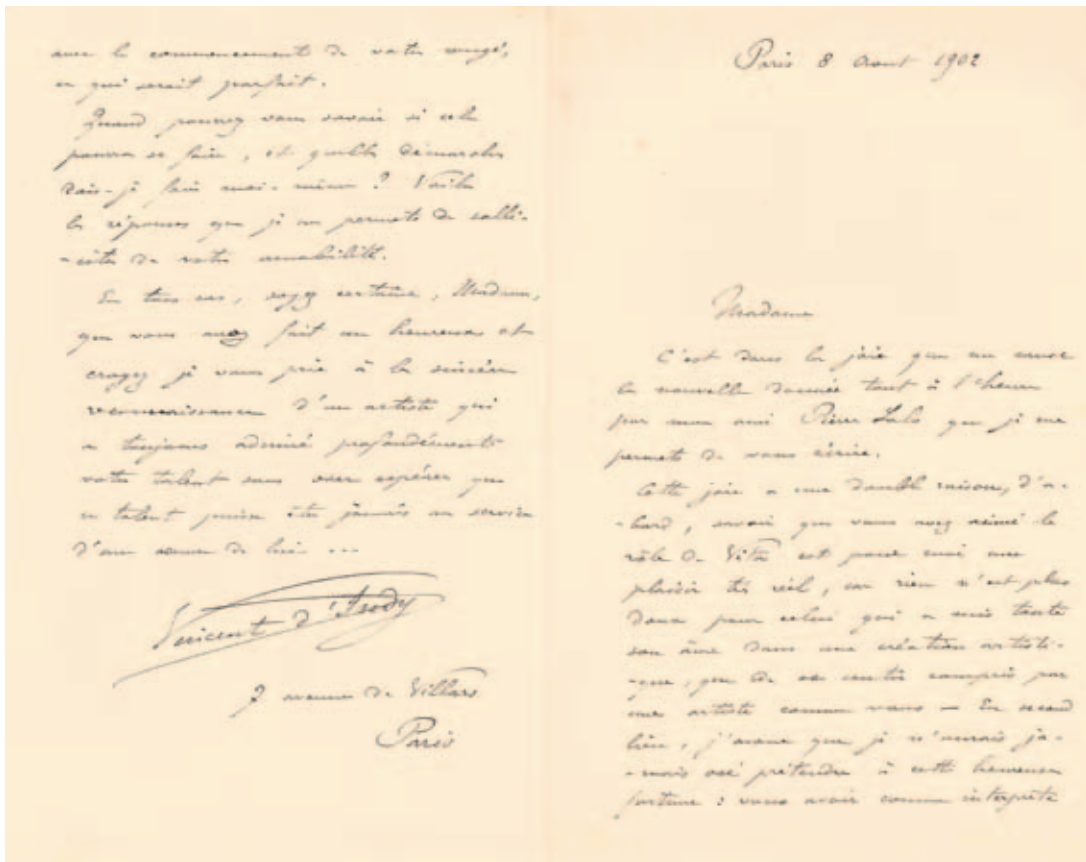 avec le commencement de votre congé,
ce qui serait parfait.
Quand pourrez vous savoir si cela
pourra se faire, et quelles démarches
dois-je faire moi-même ? Voilà
les réponses que je me permets de solli-
-citer de votre amabilité.
En tous cas, soyez certaine, Madame,
que vous avez fait un heureux et
croyez je vous prie à la sincère
reconnaissance d'un artiste qui
a toujours admiré profondément
votre talent sans oser espérer que
ce talent puisse être jamais au service
d'une œuvre de lui ...
Vincent d'Indy
7 avenue de Villars
Paris
Paris 8 Aout 1902
Madame
C'est dans la joie que me cause
la nouvelle donnée tout à l'heure
par mon ami Pierre Lalo que je me
permets de vous écrire.
Cette joie a une double raison, d'a-
-bord, savoir que vous avez aimé le
rôle de Vita est pour moi un
plaisir très réel, car rien n'est plus
doux pour celui qui a mis toute
son âme dans une création artisti-
-que, que de se sentir compris par
une artiste comme vous — En second
lieu, j'avoue que je n'aurais ja-
-mais osé prétendre à cette heureuse
fortune : vous avoir comme interprète